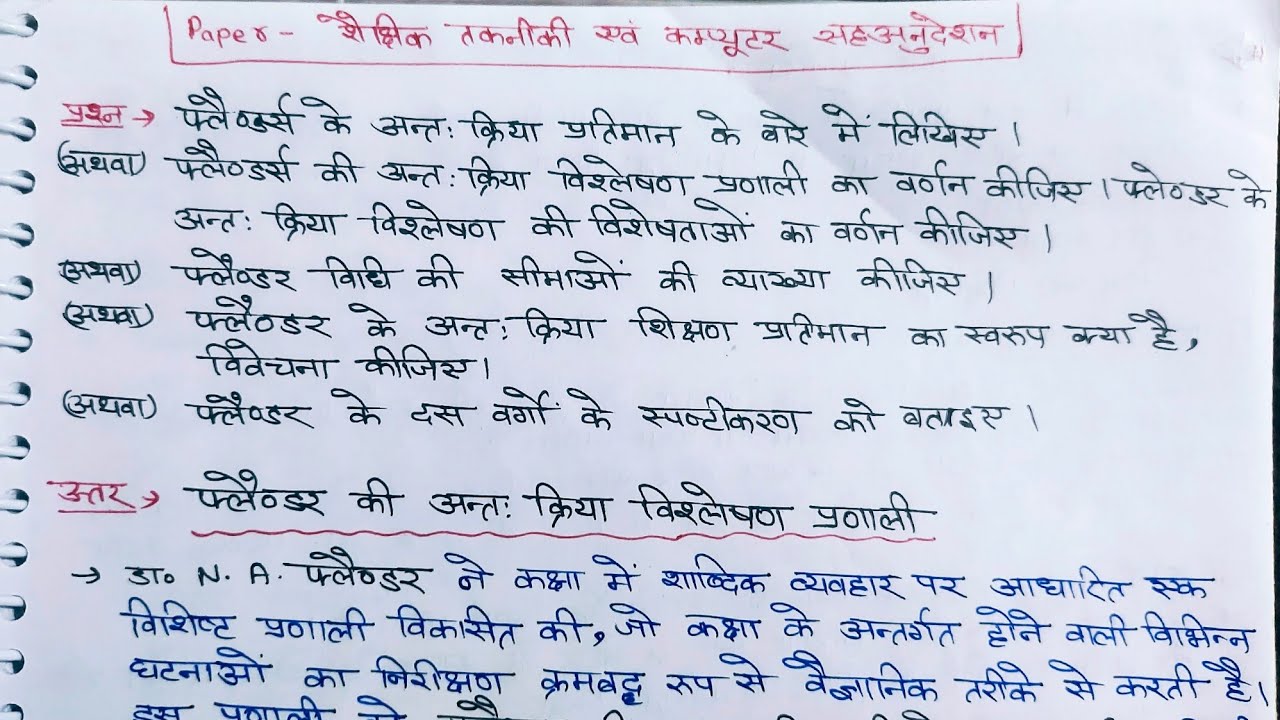 Paper - शैक्षिक तकनीकी एवं कम्प्यूटर सहअनुदेशन
प्रश्न → फ्लैण्डर्स के अन्तः क्रिया प्रतिमान के बारे में लिखिए ।
(अथवा) फ्लैण्डर्स की अन्तः क्रिया विश्लेषण प्रणाली का वर्णन कीजिए । फ्लेण्डर के
अन्तः क्रिया विश्लेषण की विशेषताओं का वर्णन कीजिए ।
(अथवा) फ्लैण्डर विधि की सीमाओं की व्याख्या कीजिए ।
(अथवा) फ्लैण्डर के अन्तः क्रिया शिक्षण प्रतिमान का स्वरुप क्या है,
विवेचना कीजिए ।
(अथवा) फ्लैण्डर के दस वर्गों के स्पष्टीकरण को बताइए ।
उत्तर → फ्लैण्डर की अन्तः क्रिया विश्लेषण प्रणाली
→ डा० N. A. फ्लैण्डर ने कक्षा में शाब्दिक व्यवहार पर आधारित एक
विशिष्ट प्रणाली विकसित की, जो कक्षा के अन्तर्गत होने वाली विभिन्न
घटनाओं का निरीक्षण क्रमबद्ध रूप से वैज्ञानिक तरीके से करती है।
इस प्रणाली को